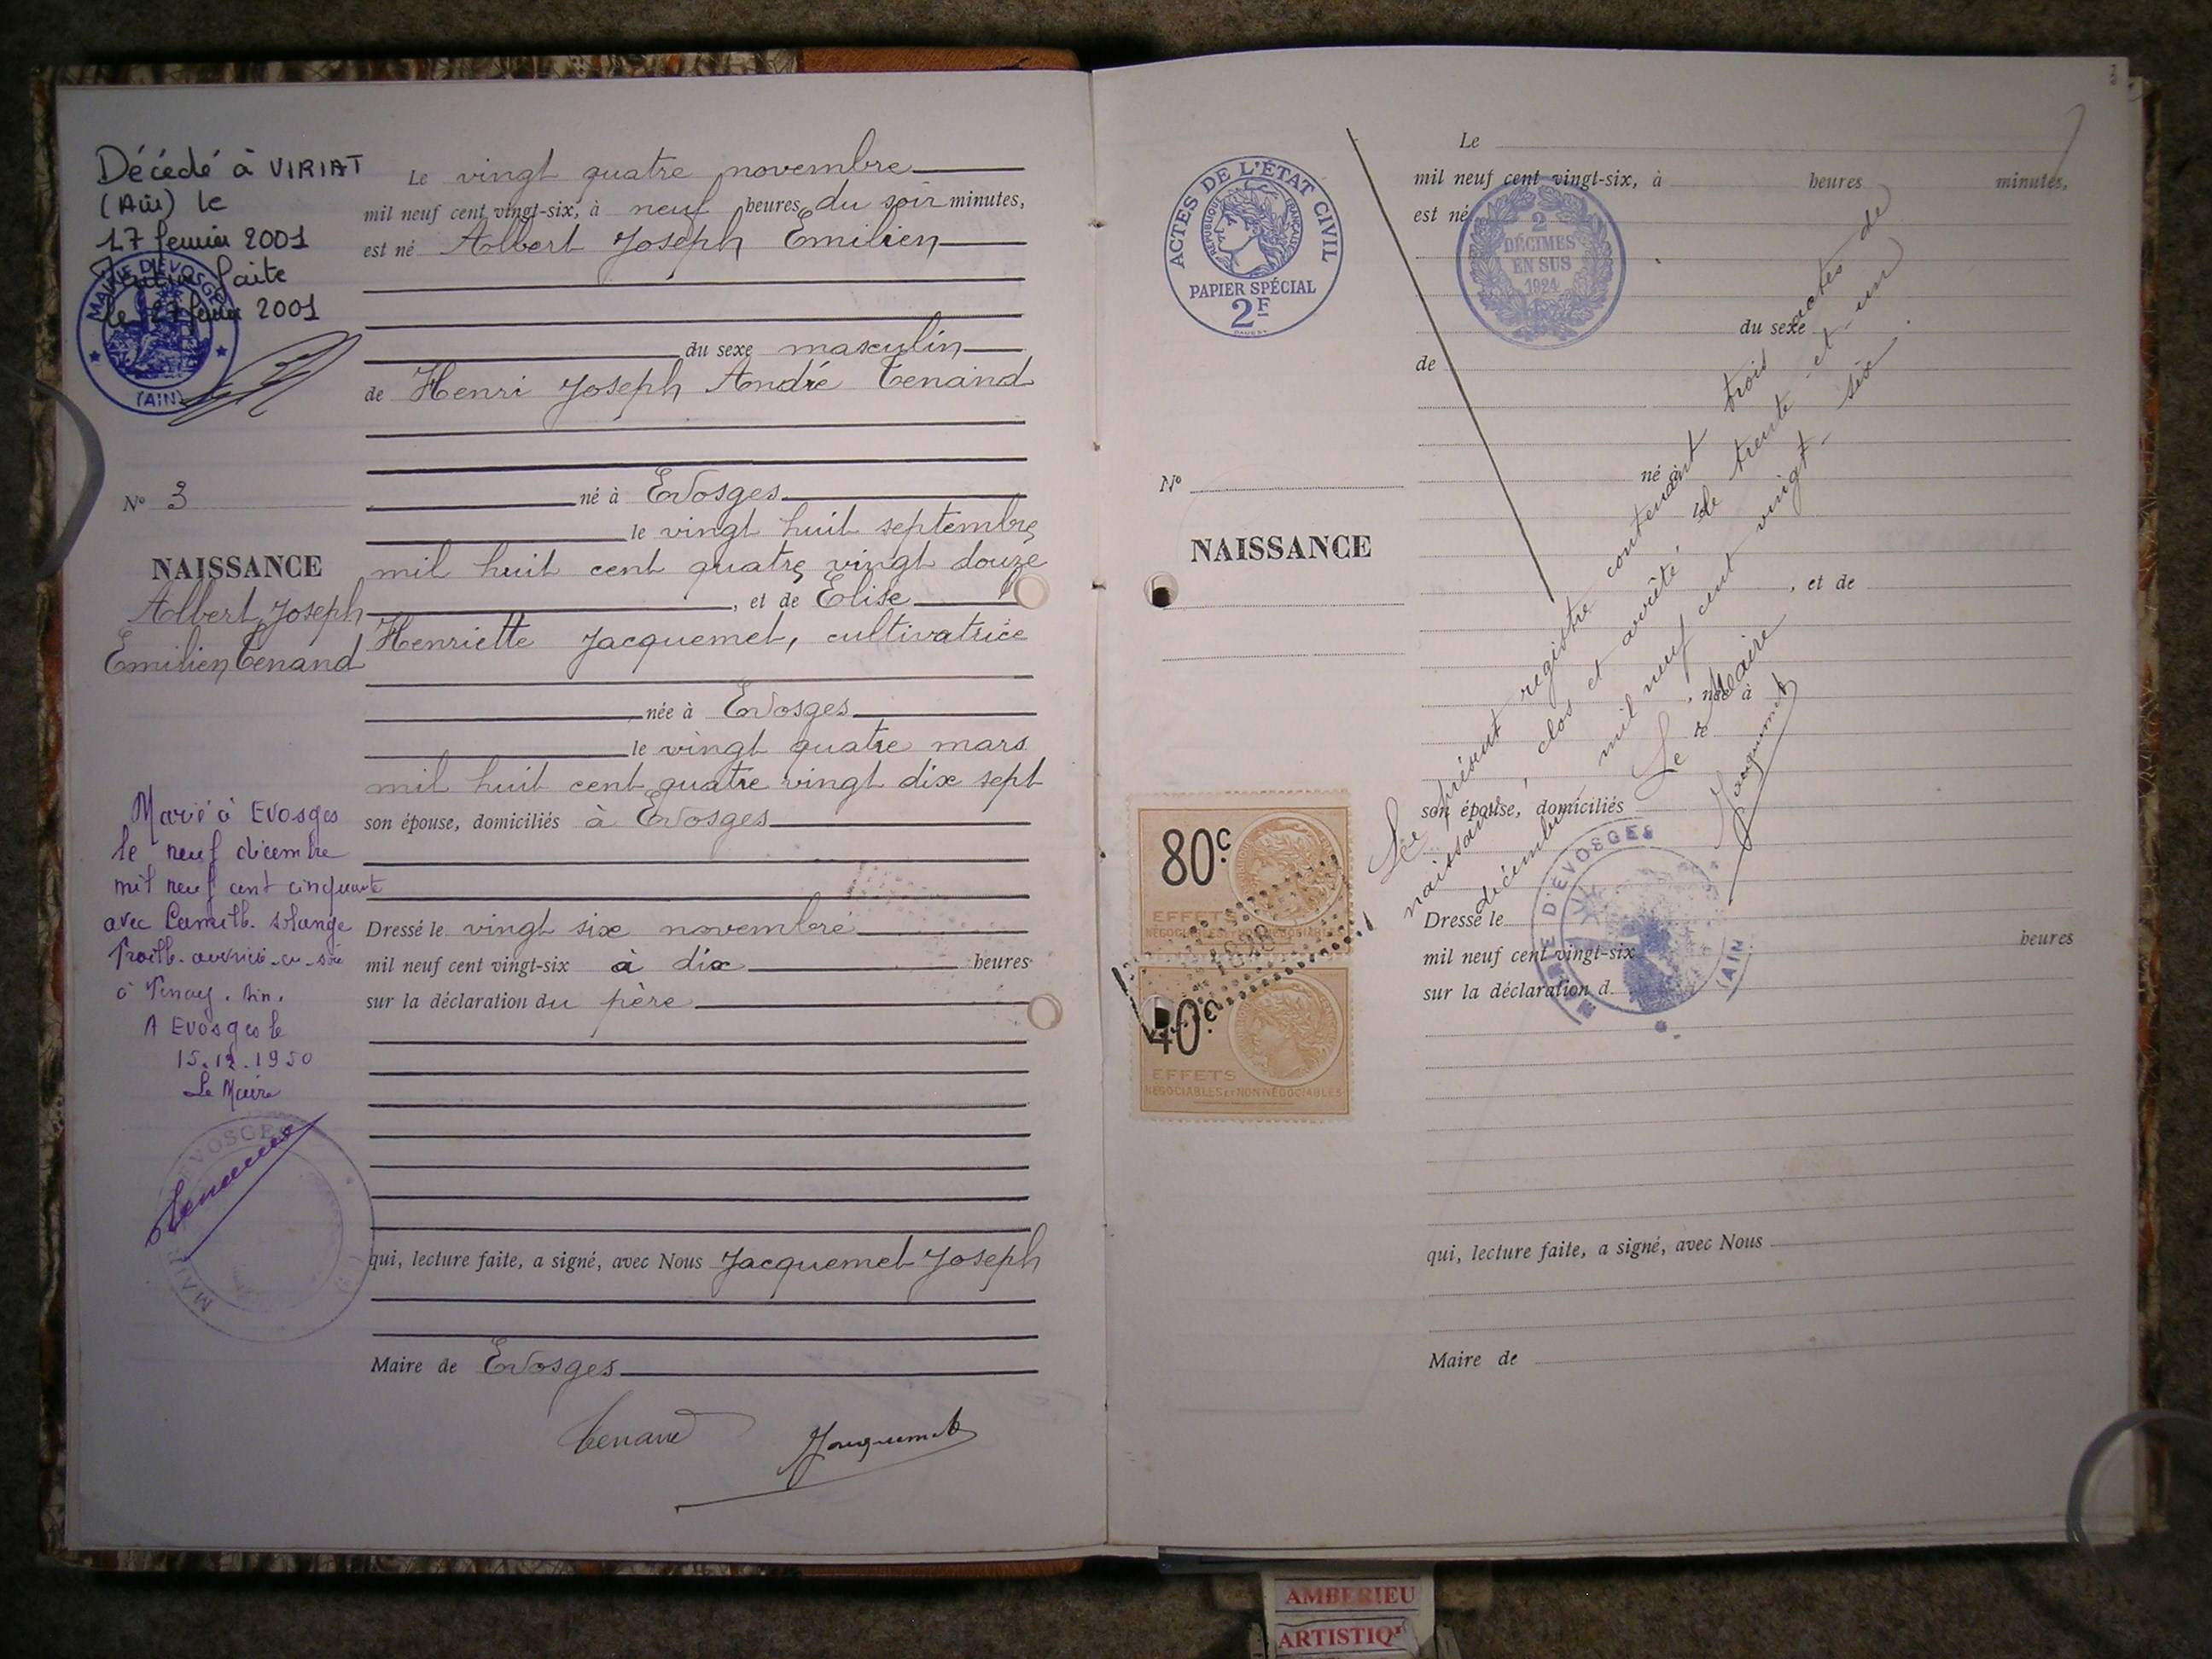 Décédé à VIRIAT
(Ain) le
17 fevrier 2001
faite
le 27 fevrier 2001
MAIRIE D'EVOSGES
(AIN)
Nº 3
NAISSANCE
Albert Joseph
Emilien Tenand
Marié à Evosges
le neuf décembre
mil neuf cent cinquante
avec Camille Solange
ouvrière en soie
à Tenay. Ain.
A Evosges le
15.12.1950
Le Maire
Le vingt quatre novembre
mil neuf cent vingt-six, à neuf heures du soir minutes,
est né Albert Joseph Emilien
du sexe masculin
de Henri Joseph André Tenand
né à Evosges
le vingt huit septembre
mil huit cent quatre vingt douze
, et de Elise
Henriette Jacquemet, cultivatrice
née à Evosges
le vingt quatre mars
mil huit cent quatre vingt dix sept
son épouse, domiciliés à Evosges
Dressé le vingt six novembre
mil neuf cent vingt-six à dix heures
sur la déclaration du père
qui, lecture faite, a signé, avec Nous Jacquemet Joseph
Maire de Evosges
Tenand
Jacquemet
ACTES DE L'ÉTAT CIVIL
RÉPUBLIQUE FRANÇAISE
PAPIER SPÉCIAL
2F
2
DÉCIMES
EN SUS
1924
Nº
NAISSANCE
80c
EFFETS
NÉGOCIABLES ET NON NÉGOCIABLES
40c
EFFETS
NÉGOCIABLES ET NON NÉGOCIABLES
Le
mil neuf cent vingt-six, à heures minutes,
est né
du sexe
de
né à
le
, et de
, née à
le
son épouse, domiciliés
Dressé le
mil neuf cent vingt-six heures
sur la déclaration d
qui, lecture faite, a signé, avec Nous
Maire de
Le présent registre contenant trois actes de
naissance, clos et arrêté le trente et un
décembre mil neuf cent vingt-six.
Le Maire
Jacquemet
MAIRIE D'EVOSGES
(AIN)
AMBERIEU
ARTISTIQ